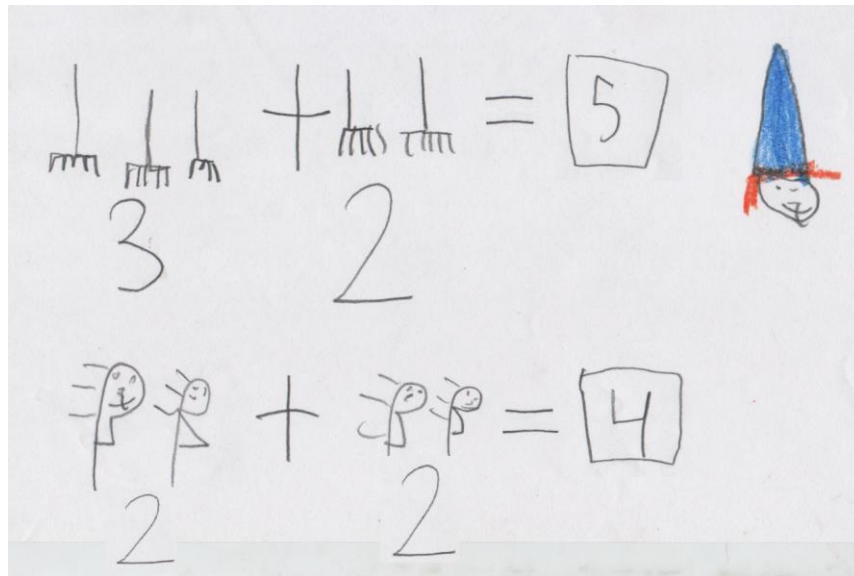 + = 5
3 2
+ = 4
2 2